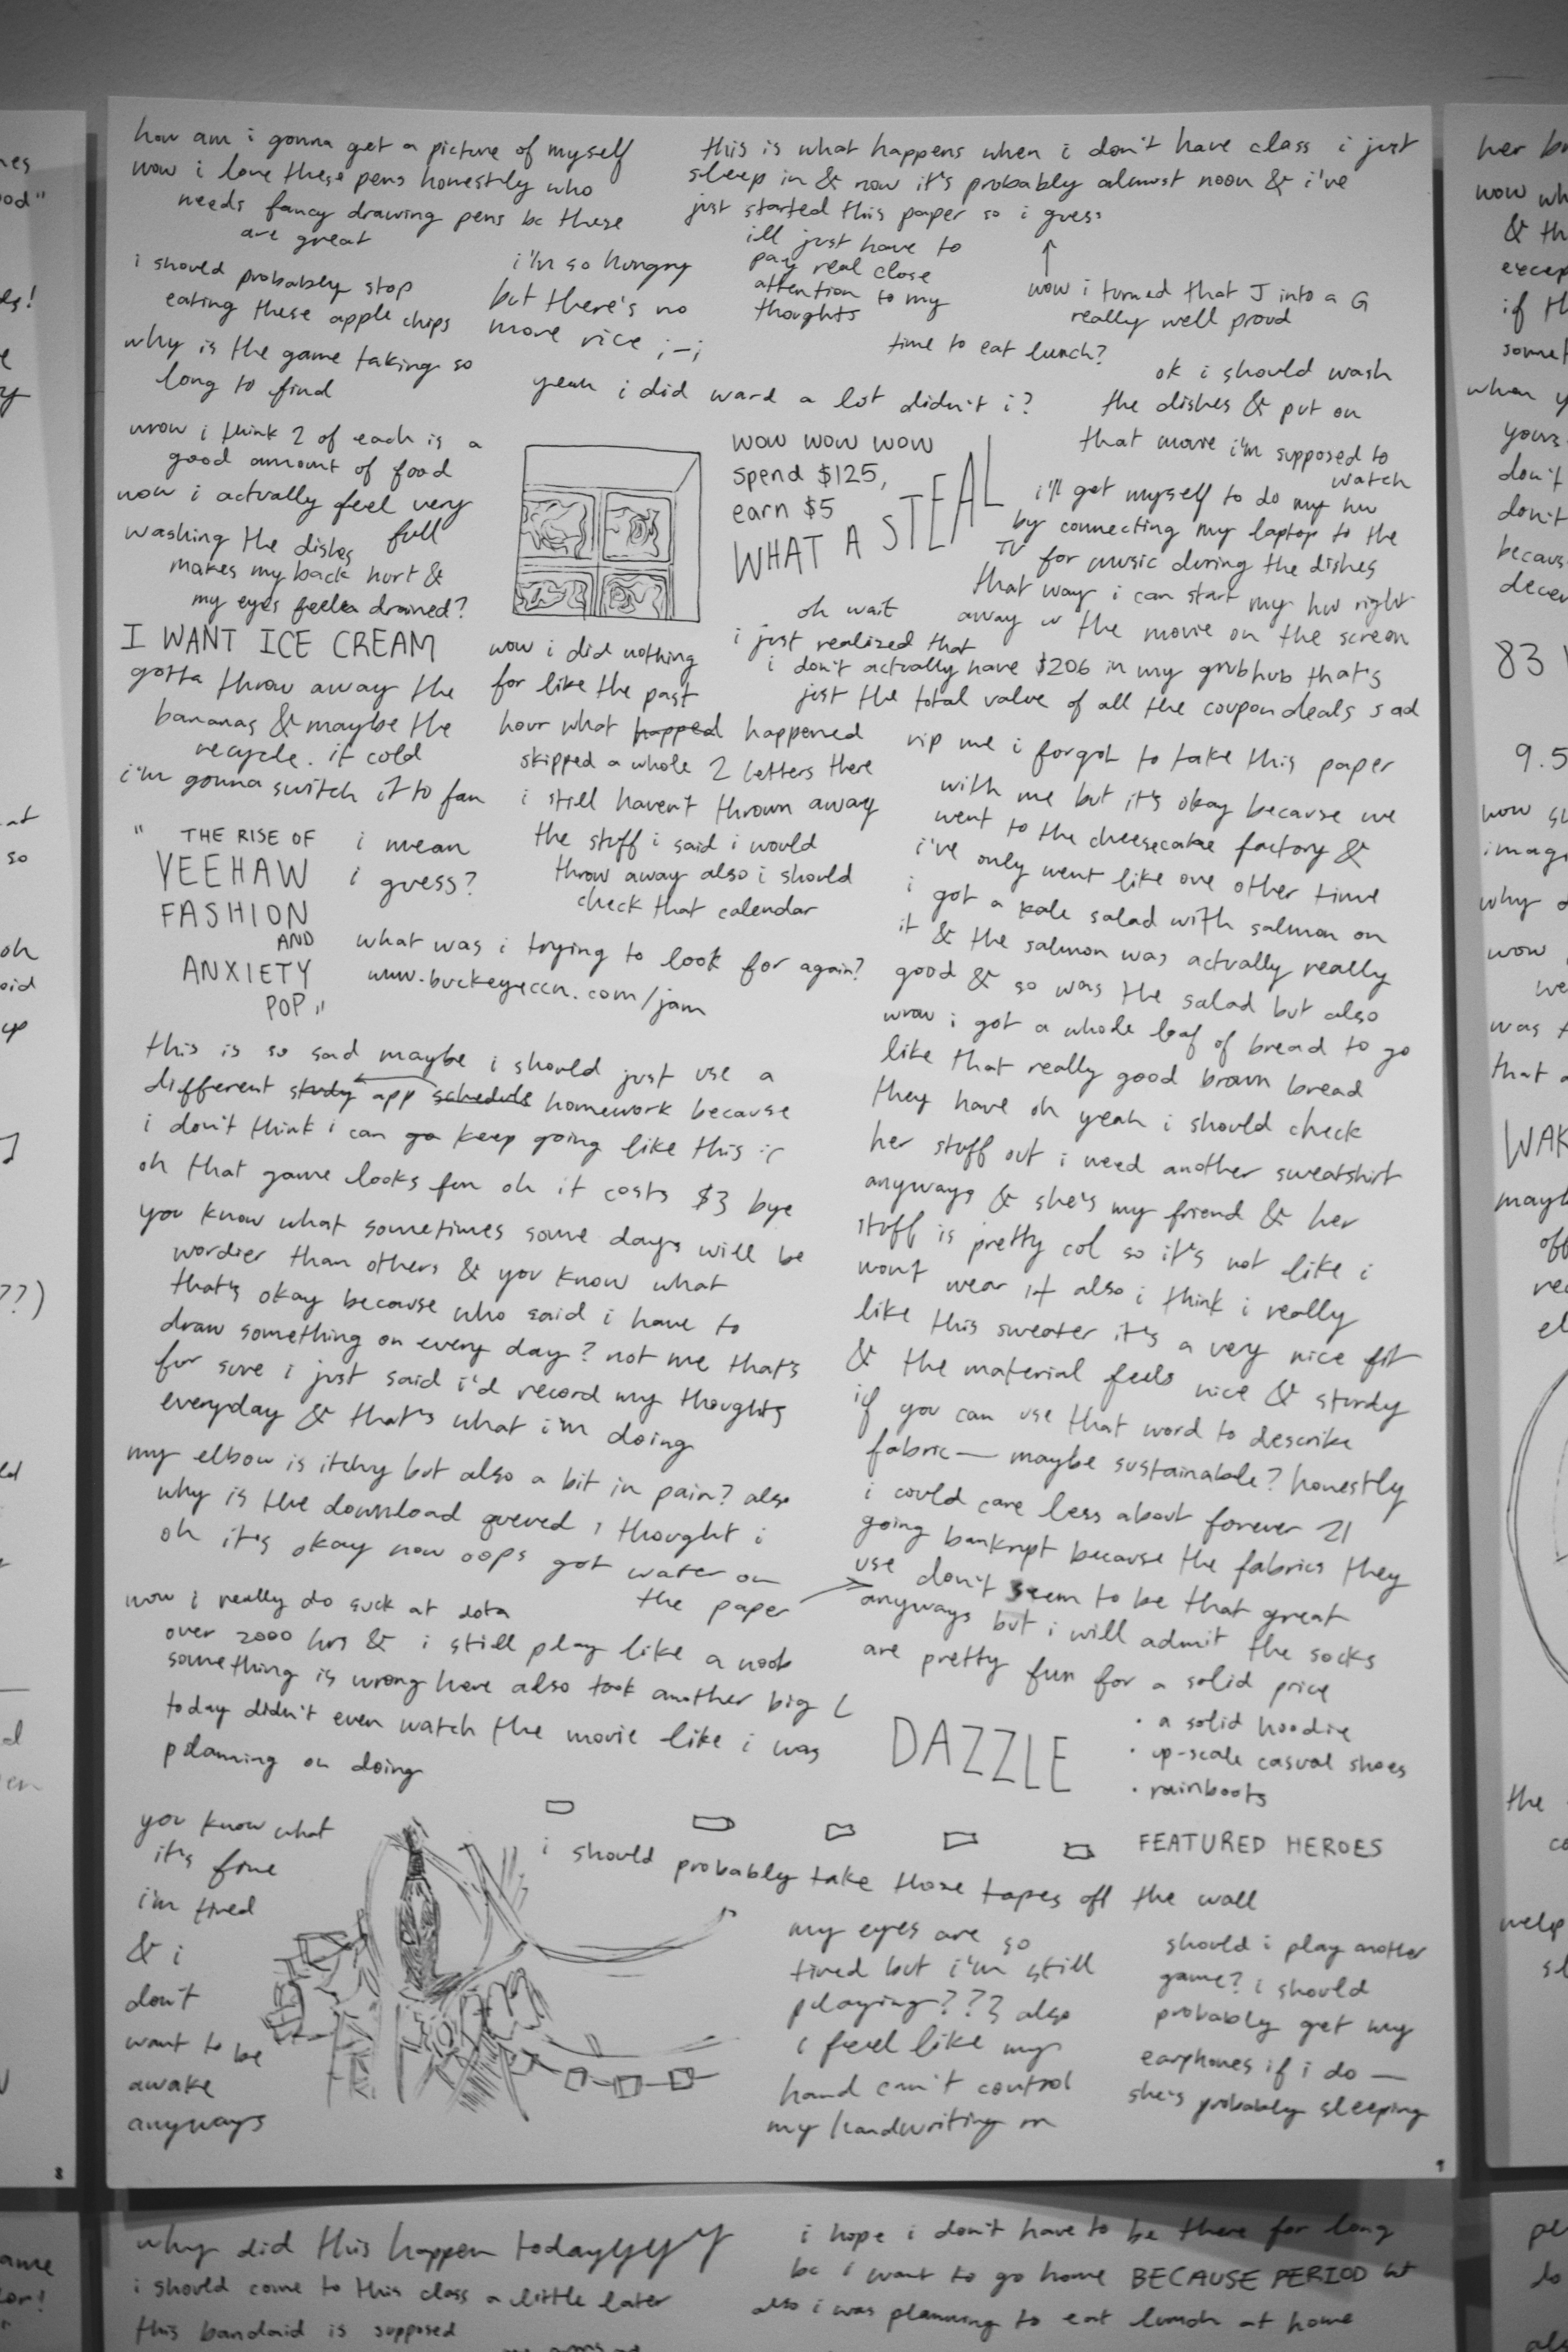 how am i gonna get a picture of myself
wow i love these pens honestly who
needs fancy drawing pens bc these
are great
this is what happens when i don't have class i just
sleep in & now it's probably almost noon & i've
just started this paper so i guess
i'll just have to
pay real close
attention to my
thoughts
wow i turned that J into a G
really well proud
i should probably stop
eating these apple chips
why is the game taking so
long to find
i'm so hungry
but there's no
more rice ;-;
time to eat lunch?
yeah i did ward a lot didn't i?
ok i should wash
the dishes & put on
that movie i'm supposed to
watch
wow i think 2 of each is a
good amount of food
now i actually feel very
full
washing the dishes
makes my back hurt &
my eyes feel drained?
I WANT ICE CREAM
gotta throw away the
bananas & maybe the
recycle. it cold
i'm gonna switch it to fan
WOW WOW WOW
spend $125,
earn $5
WHAT A STEAL
i'll get myself to do my hw
by connecting my laptop to the
TV for music during the dishes
that way i can start my hw right
away w the movie on the screen
oh wait
i just realized that
i don't actually have $206 in my grubhub that's
just the total value of all the coupon deals sad
wow i did nothing
for like the past
hour what happed happened
skipped a whole 2 letters there
i still haven't thrown away
the stuff i said i would
throw away also i should
check that calendar
"THE RISE OF
YEEHAW
FASHION
AND
ANXIETY
POP"
i mean
i guess?
what was i trying to look for again?
www.buckeyeccn.com/jam
rip me i forgot to take this paper
with me but it's okay because we
went to the cheesecake factory &
i've only went like one other time
i got a kale salad with salmon on
it & the salmon was actually really
good & so was the salad but also
wow i got a whole loaf of bread to go
like that really good brown bread
they have oh yeah i should check
her stuff out i need another sweatshirt
anyways & she's my friend & her
stuff is pretty col so it's not like i
wont wear it also i think i really
like this sweater it's a very nice fit
& the material feels nice & sturdy
if you can use that word to describe
fabric— maybe sustainable? honestly
i could care less about forever 21
going bankrupt because the fabrics they
use don't seem to be that great
anyways but i will admit the socks
are pretty fun for a solid price
this is so sad maybe i should just use a
different study app schedule homework because
i don't think i can go keep going like this :(
oh that game looks fun oh it costs $3 bye
you know what sometimes some days will be
wordier than others & you know what
that's okay because who said i have to
draw something on every day? not me that's
for sure i just said i'd record my thoughts
everyday & that's what i'm doing
my elbow is itchy but also a bit in pain? also
why is the download queued i thought i
oh it's okay now oops got water on
the paper
wow i really do suck at dota
over 2000 hrs & i still play like a noob
something is wrong here also took another big L
today didn't even watch the movie like i was
planning on doing
DAZZLE
· a solid hoodie
· up-scale casual shoes
· rainboots
FEATURED HEROES
i should probably take those tapes off the wall
you know what
it's fine
i'm tired
& i
don't
want to be
awake
anyways
my eyes are so
tired but i'm still
playing??? also
i feel like my
hand can't control
my handwriting rn
should i play another
game? i should
probably get my
earphones if i do —
she's probably sleeping
8
9
why did this happen todayyyyy
i should come to this class a little later
this bandaid is supposed
i hope i don't have to be there for long
bc i want to go home BECAUSE PERIOD
also i was planning to eat lunch at home
her
wow
& th
if th
when
yours
don't
don't
83
9.5
why
wow
was
that
the